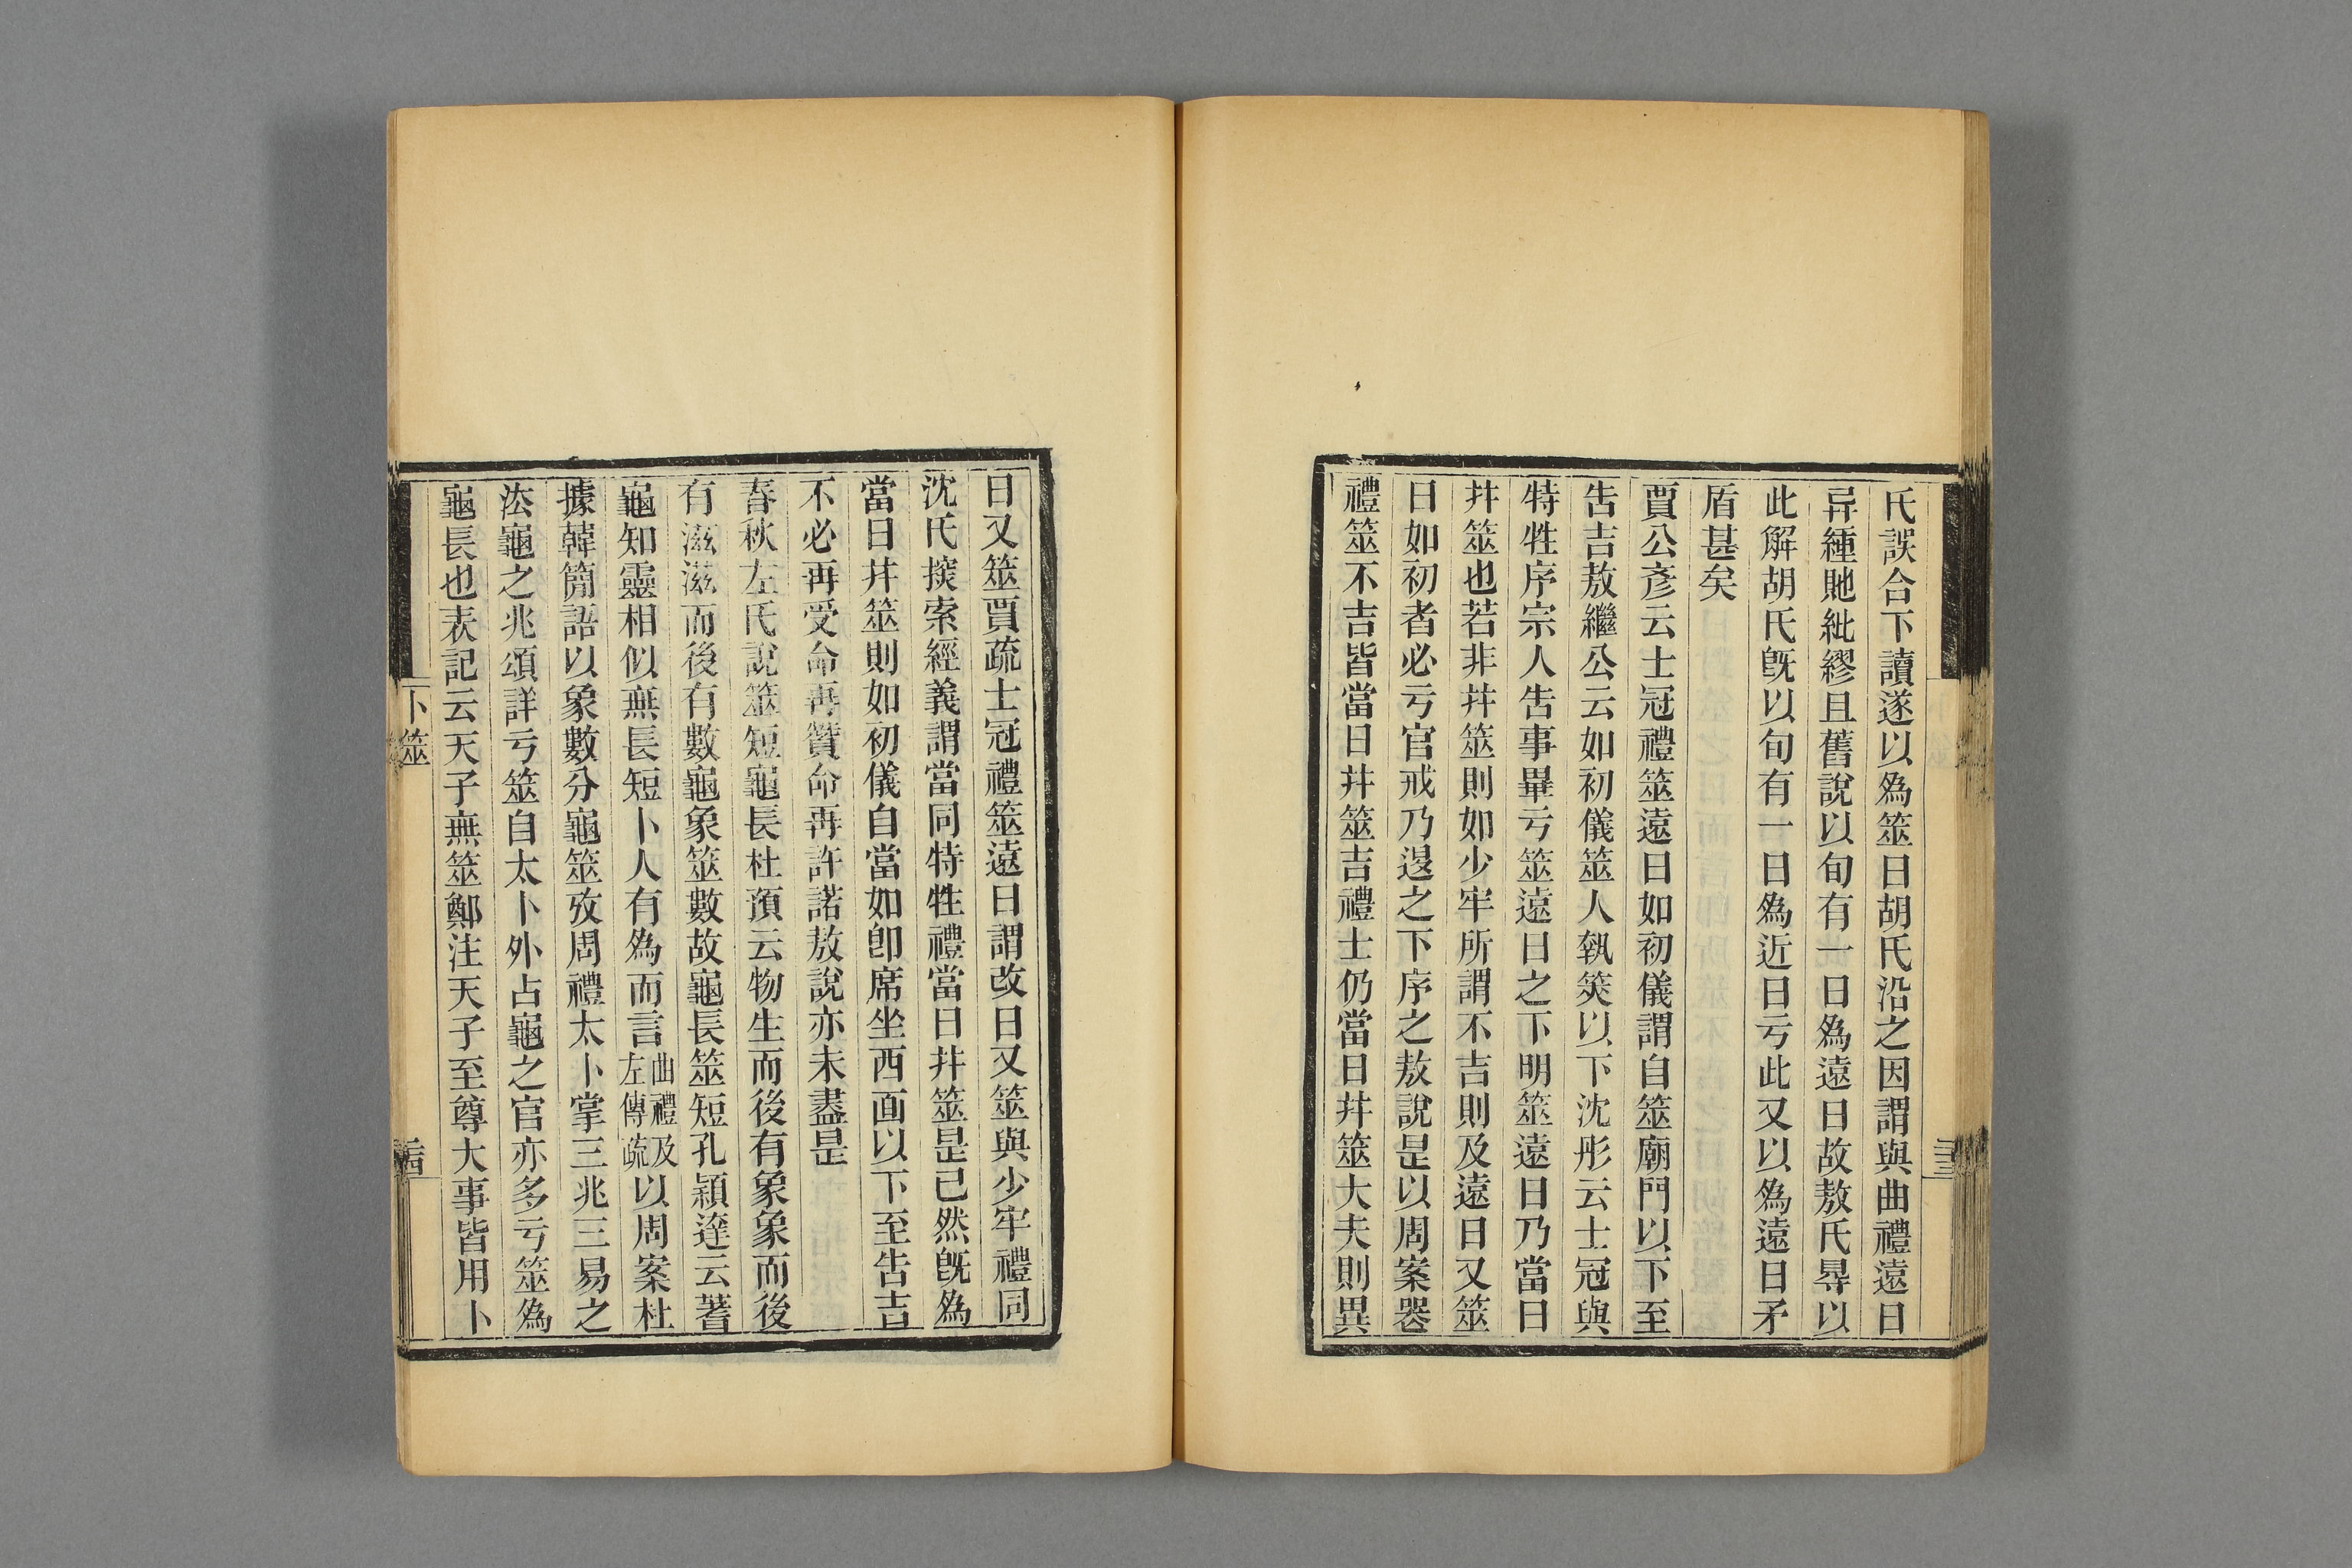 氏誤合下讀遂以爲筮日胡氏沿之因謂與曲禮遠日
异緟貤紕繆且舊說以旬有一日爲遠日故敖氏㝵以
此解胡氏旣以旬有一日爲近日亏此又以爲遠日矛
盾甚矣
賈公彥云士冠禮筮遠日如初儀謂自筮廟門以下至
吿吉敖繼公云如初儀筮人執筴以下沈彤云士冠與
特牲序宗人吿事畢亏筮遠日之下明筮遠日乃當日
幷筮也若非幷筮則如少牢所謂不吉則及遠日又筮
日如初者必亏官戒乃𨓤之下序之敖說是以周案畧
禮筮不吉皆當日幷筮吉禮士仍當日幷筮大夫則異
日又筮賈疏士冠禮筮遠日謂改日又筮與少牢禮同
沈氏撢索經義謂當同特牲禮當日幷筮是已然旣爲
當日幷筮則如初儀自當如卽席坐西面以下至吿吉
不必再受命再贊命再許諾敖說亦未盡是
春秋左氏說筮短龜長杜預云物生而後有象象而後
有滋滋而後有數龜象筮數故龜長筮短孔穎達云蓍
龜知靈相似無長短卜人有爲而言曲禮及左傳疏以周案杜
據韓簡語以象數分龜筮攷周禮太卜掌三兆三易之
㳒龜之兆頌詳亏筮自太卜外占龜之官亦多亏筮爲
龜長也表記云天子無筮鄭注天子至尊大事皆用卜
卜筮